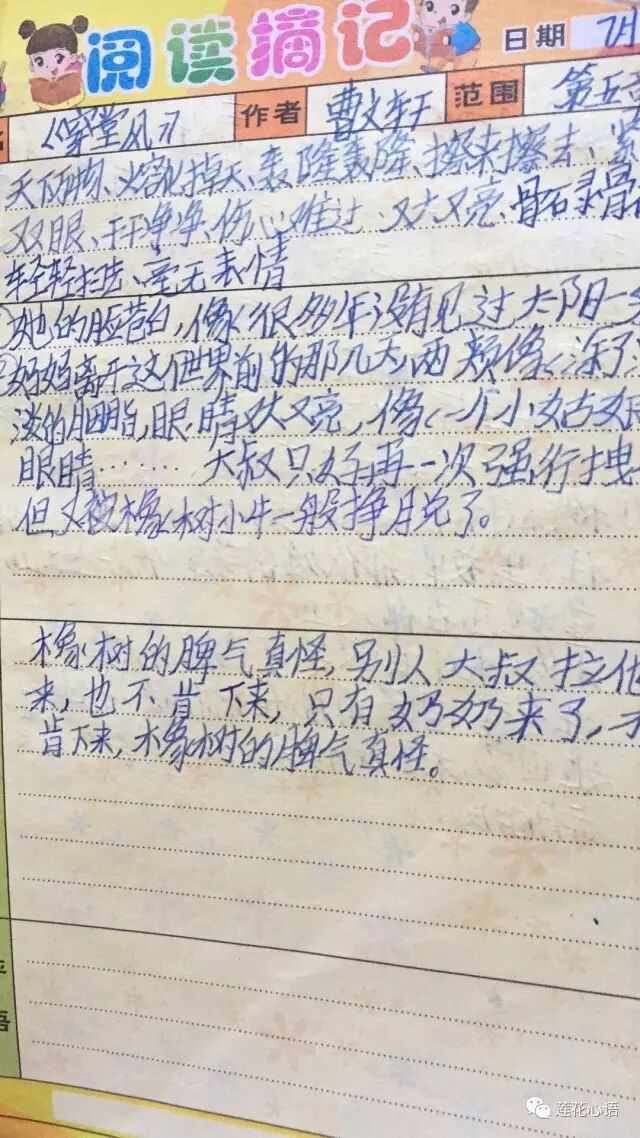 阅读摘记 日期 7月
《穿堂风》 作者 曹文轩 范围 第五
掉、轰隆轰隆、擦来擦去、紧
双眼、干干净净、伤心难过、又大又亮、骨石录骨
轻轻 毫无表情
她的脸苍白,像很多年没有见过太阳一
妈妈离开这个世界前的那几天,两颊像涂了
淡的胭脂,眼睛又大又亮,像一个小姑娘
眼睛……大叔只好再一次强行拽
但又被橡树小牛一般挣月兑了。
橡树的脾气真怪,别人大叔拉他
来,也不肯下来,只有奶奶来了,才
肯下来,橡树的脾气真怪。
语
莲花心语